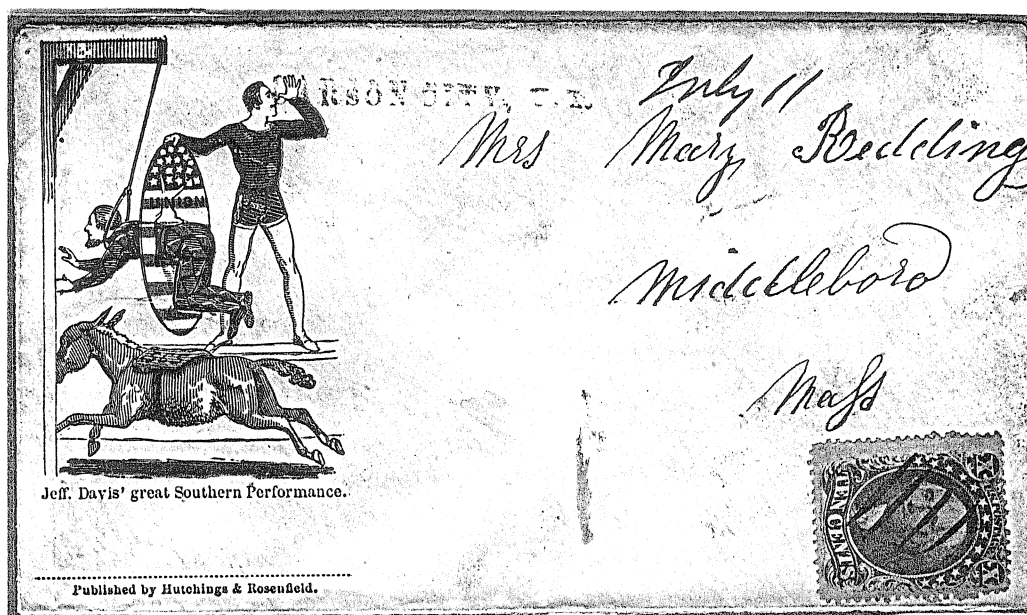 RSON CITY, U.T.
July 11
Mrs Mary Redding
Middleboro
Mass
UNION
Jeff. Davis' great Southern Performance.
Published by Hutchings & Rosenfield.